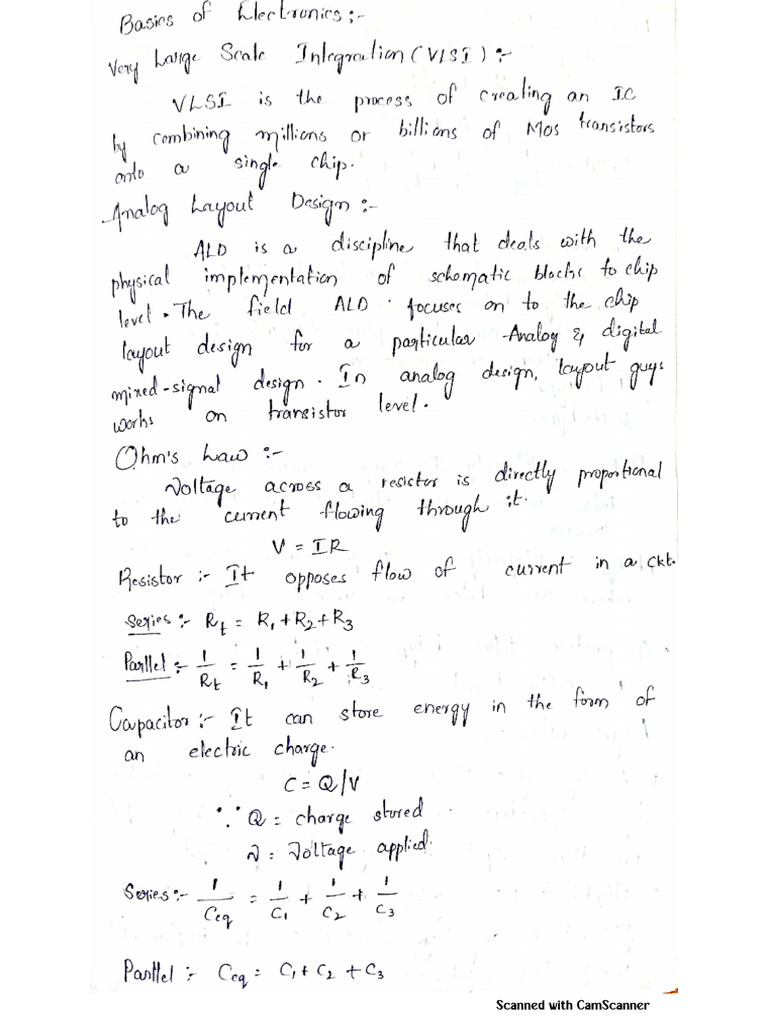 Basics of Electronics:-
Very Large Scale Integration (VLSI):-
VLSI is the process of creating an IC
by combining millions or billions of Mos transistors
onto a single chip.
Analog Layout Design:-
ALD is a discipline that deals with the
physical implementation of schematic blocks to chip
level. The field ALD focuses on to the chip
layout design for a particular Analog & digital
mixed-signal design. In analog design, layout guys
works on transistor level.
Ohm's Law:-
Voltage across a resistor is directly proportional
to the current flowing through it.
V = IR
Resistor:- It opposes flow of current in a ckt.
Series:- Rt = R1 + R2 + R3
Parllel:- 1/Rt = 1/R1 + 1/R2 + 1/R3
Capacitor:- It can store energy in the form of
an electric charge.
C = Q/V
∵ Q = charge stored
V = Voltage applied.
Series:- 1/Ceq = 1/C1 + 1/C2 + 1/C3
Parllel:- Ceq = C1 + C2 + C3
Scanned with CamScanner